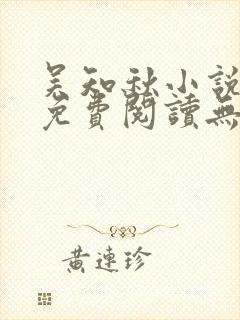 吴知秋小說
免費閱讀無
黃連珍